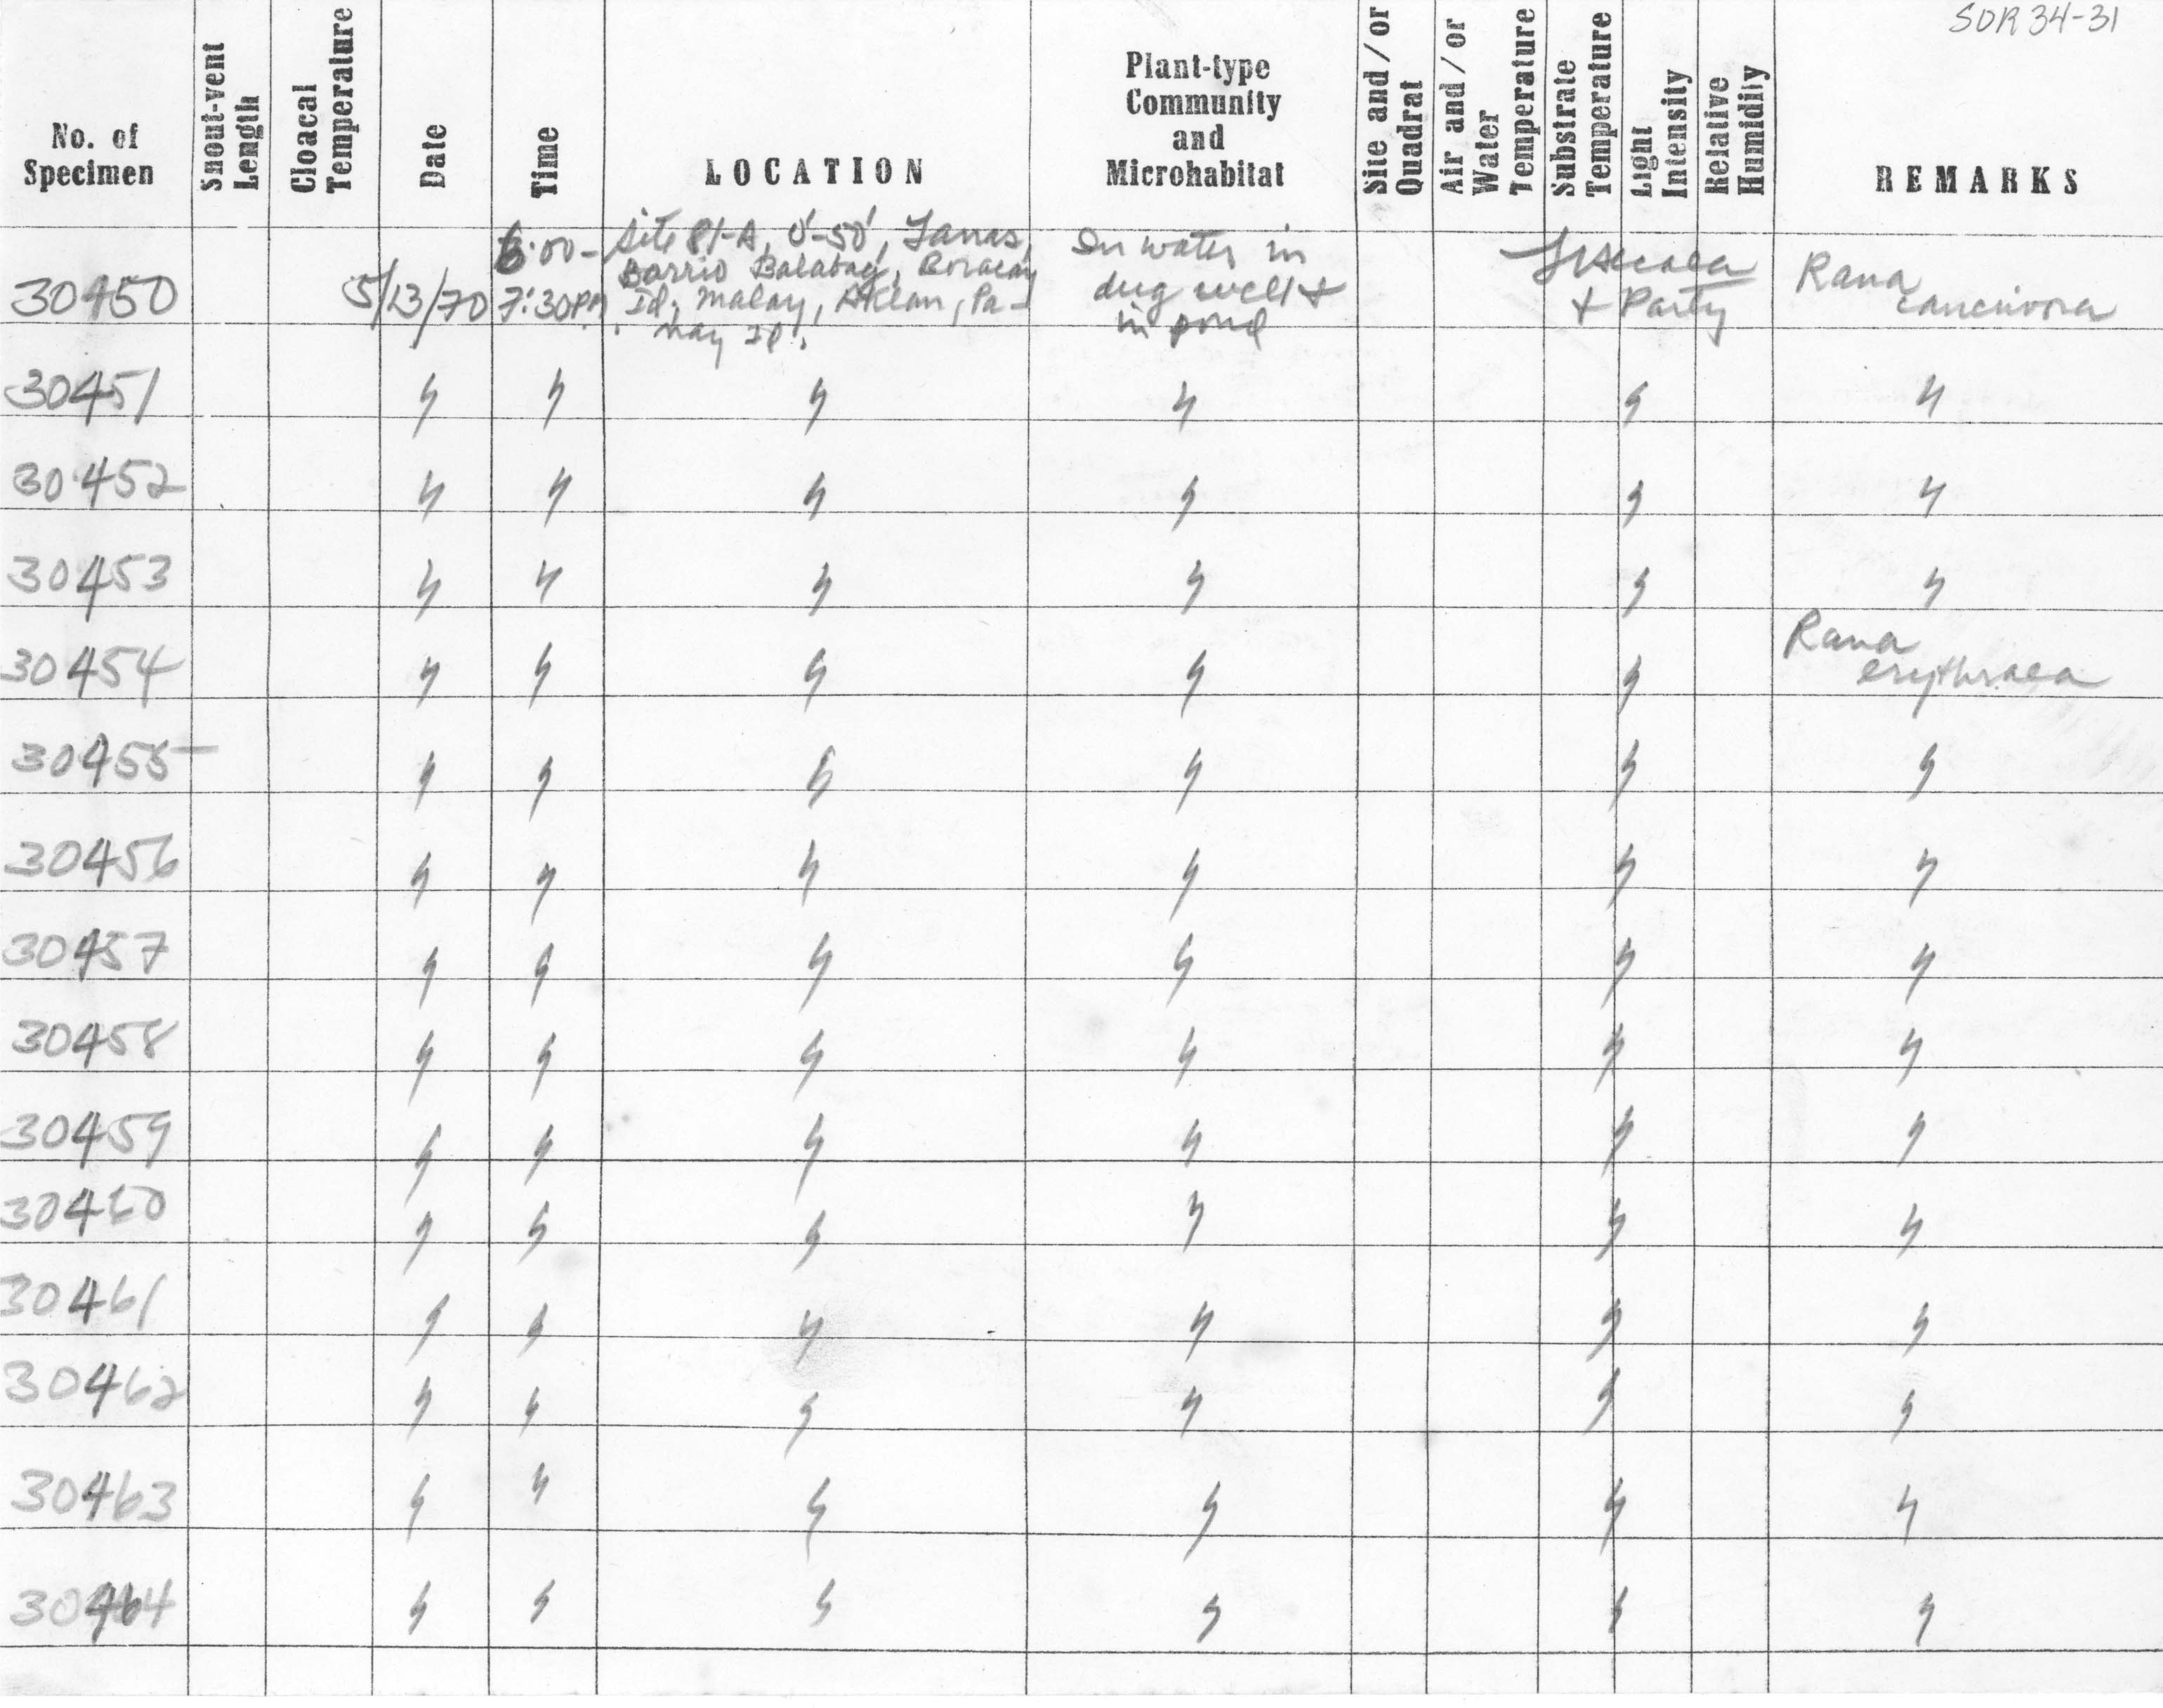 SOR 34-31
No. of Specimen | Snout-vent Length | Cloacal Temperature | Date | Time | LOCATION | Plant-type Community and Microhabitat | Site and/or Quadrat | Air and/or Water Temperature | Substrate Temperature | Light Intensity | Relative Humidity | REMARKS
30450 | 5/13/70 | 6:00-7:30PM | Site 81-A, 0'-50', Barrio Balabag, Boracay Id., Malay, Aklan, Panay Id. | In water in dug well + in pond | + Party | Rana cancrivora
30451 | 〃 | 〃 | 〃 | 〃 | 〃 | 〃
30452 | 〃 | 〃 | 〃 | 〃 | 〃 | 〃
30453 | 〃 | 〃 | 〃 | 〃 | 〃 | 〃
30454 | 〃 | 〃 | 〃 | 〃 | 〃 | Rana erythraea
30455 | 〃 | 〃 | 〃 | 〃 | 〃 | 〃
30456 | 〃 | 〃 | 〃 | 〃 | 〃 | 〃
30457 | 〃 | 〃 | 〃 | 〃 | 〃 | 〃
30458 | 〃 | 〃 | 〃 | 〃 | 〃 | 〃
30459 | 〃 | 〃 | 〃 | 〃 | 〃 | 〃
30460 | 〃 | 〃 | 〃 | 〃 | 〃 | 〃
30461 | 〃 | 〃 | 〃 | 〃 | 〃 | 〃
30462 | 〃 | 〃 | 〃 | 〃 | 〃 | 〃
30463 | 〃 | 〃 | 〃 | 〃 | 〃 | 〃
30464 | 〃 | 〃 | 〃 | 〃 | 〃 | 〃